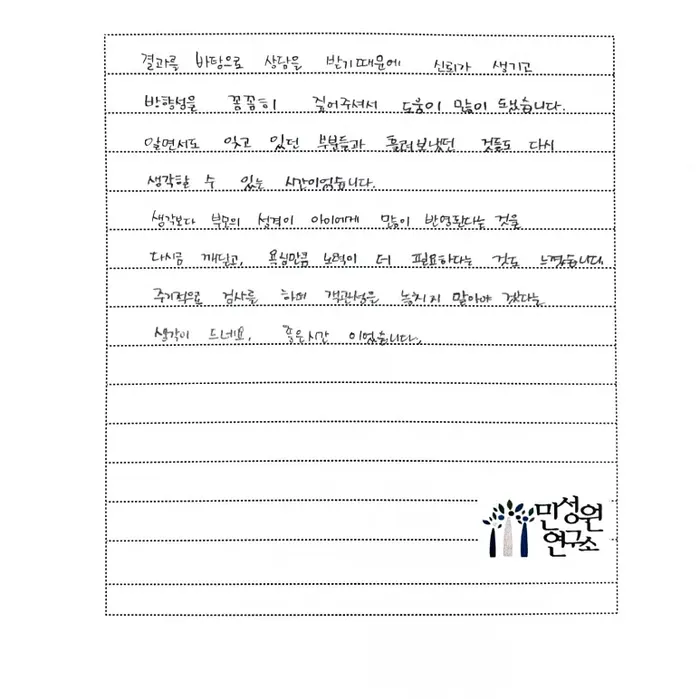 결과를 바탕으로 상담을 받기때문에 신뢰가 생기고
방향성을 꼼꼼히 짚어주셔서 도움이 많이 되었습니다.
알면서도 잊고 있던 부분들과 흘려보냈던 것들도 다시
생각할 수 있는 시간이었습니다.
생각보다 부모의 성격이 아이에게 많이 반영된다는 것을
다시금 깨닫고, 욕심만큼 노력이 더 필요하다는 것도 느꼈습니다.
주기적으로 검사를 하며 객관성은 놓치지 말아야 겠다는
생각이 드네요. 좋은시간 이었습니다.
민성원
연구소